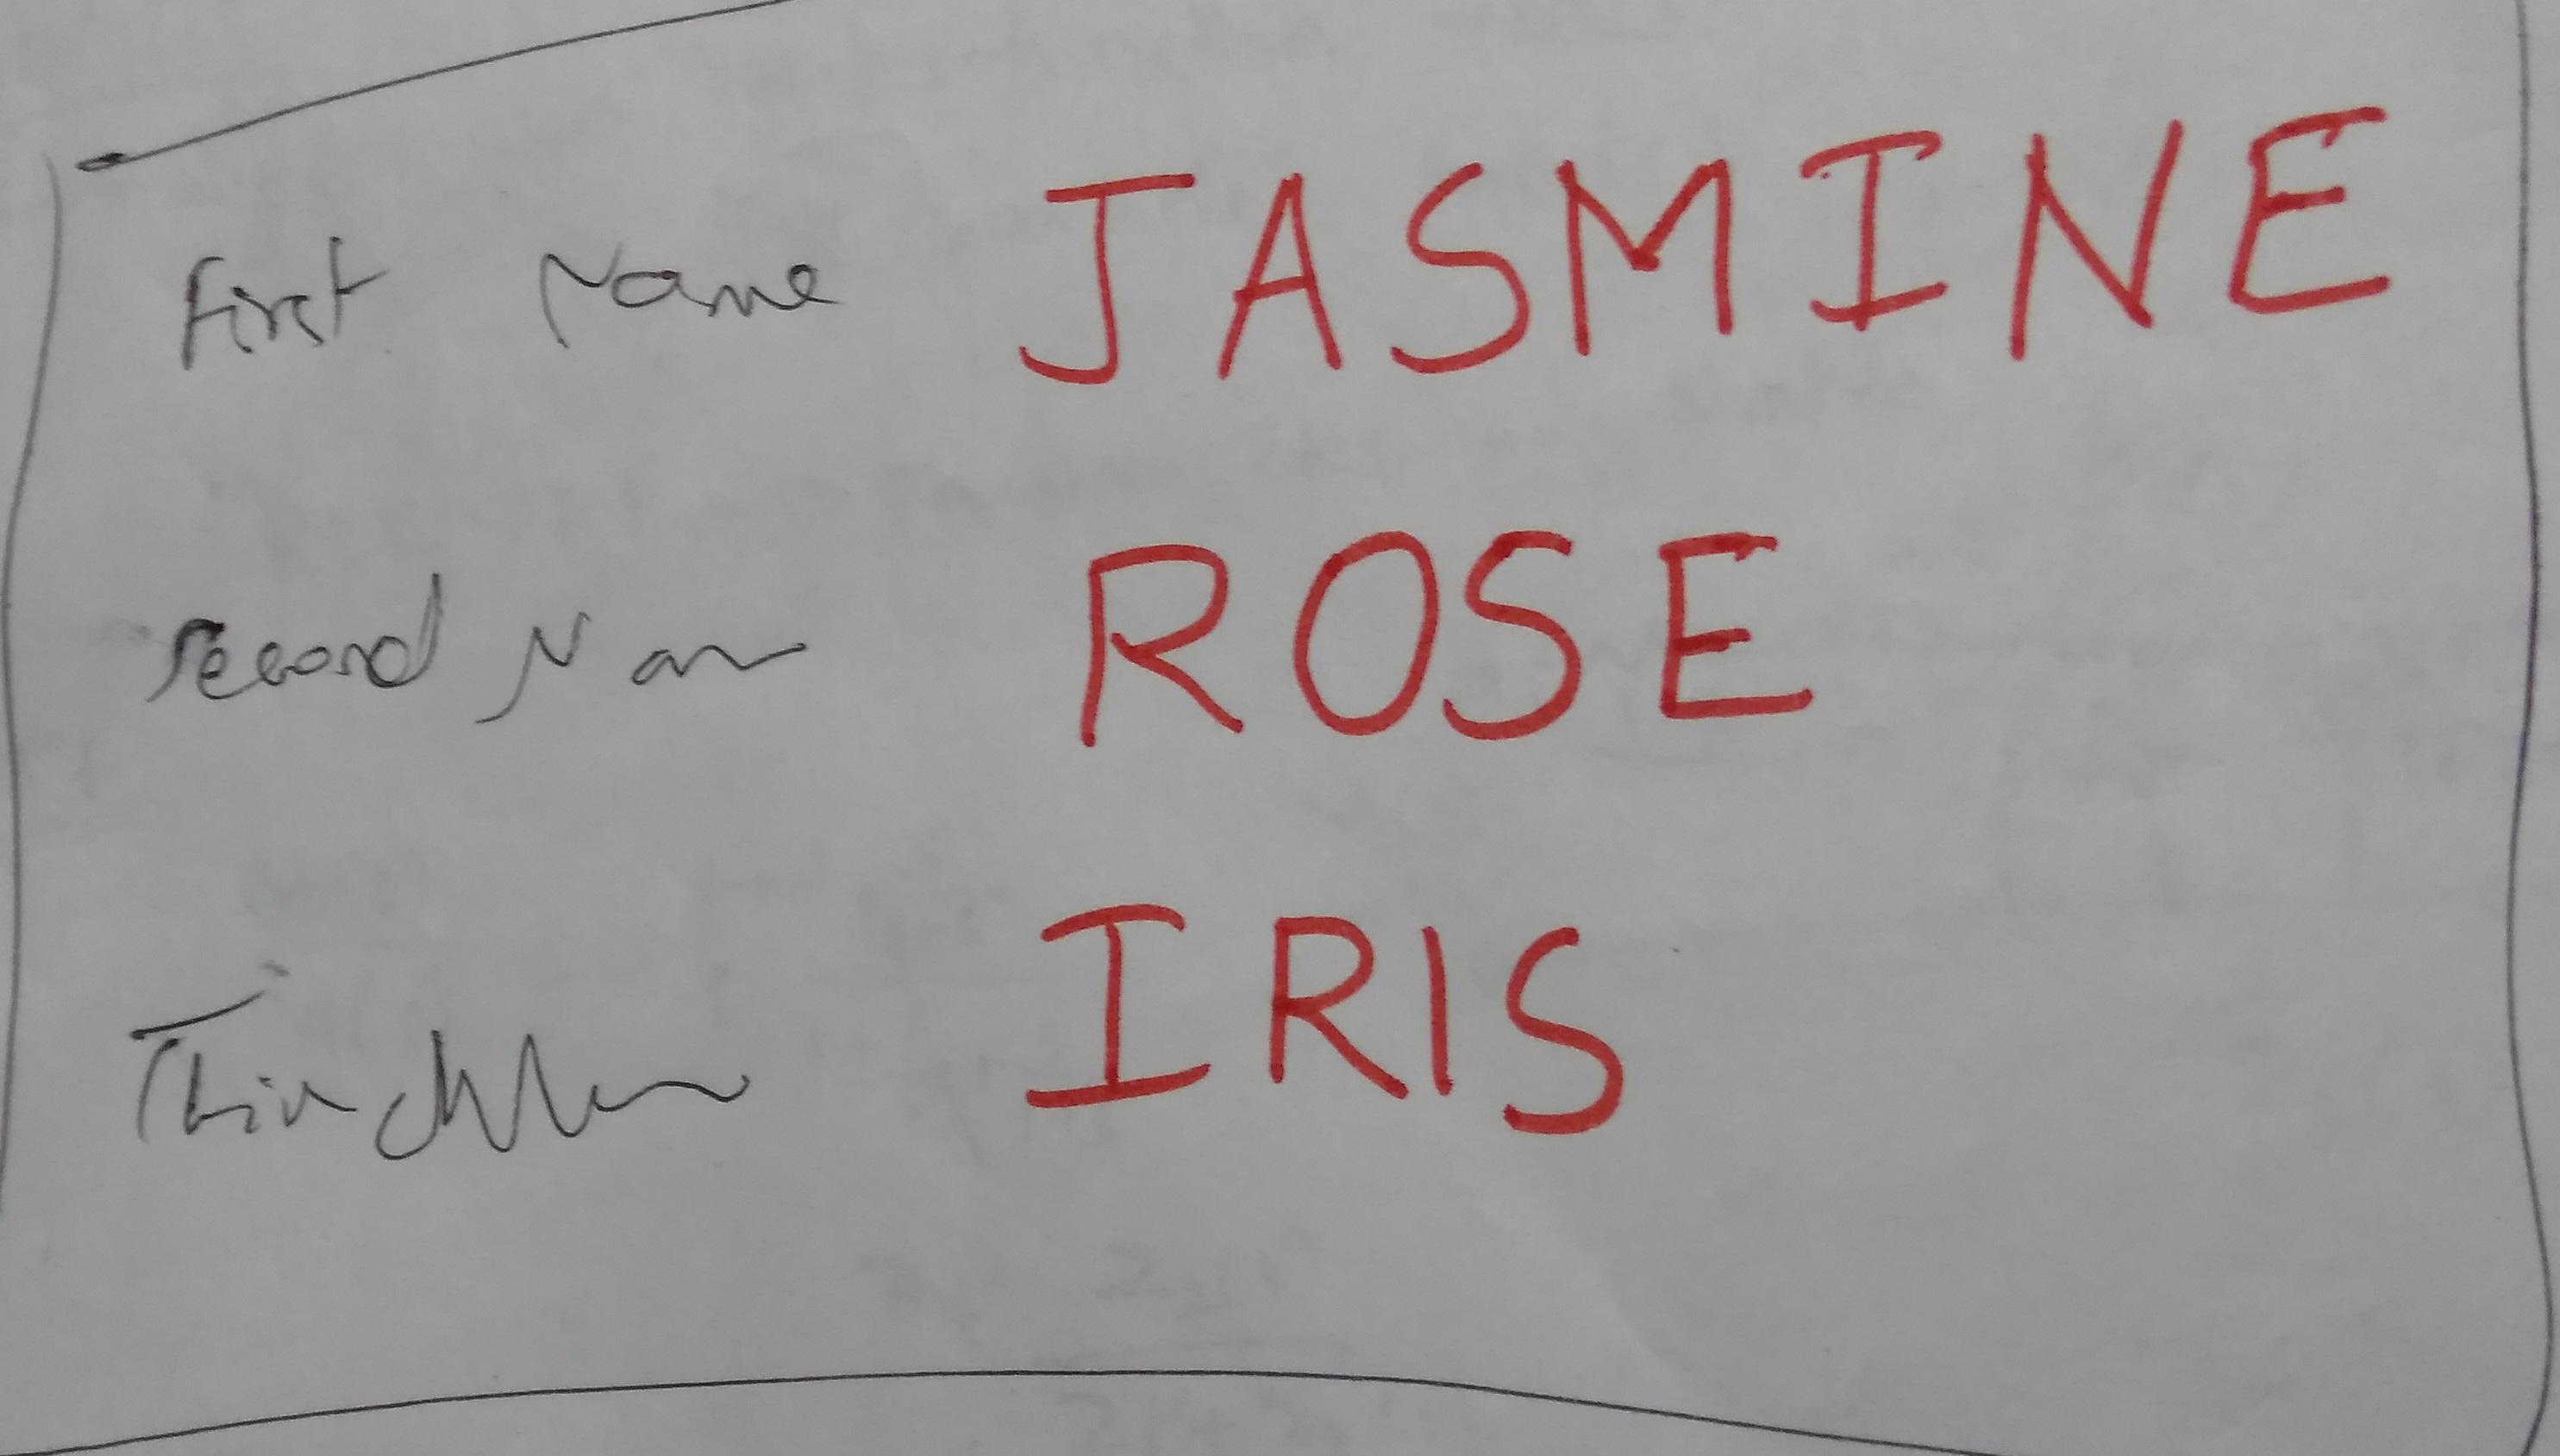 First Name JASMINE
Second Nam ROSE
Third IRIS